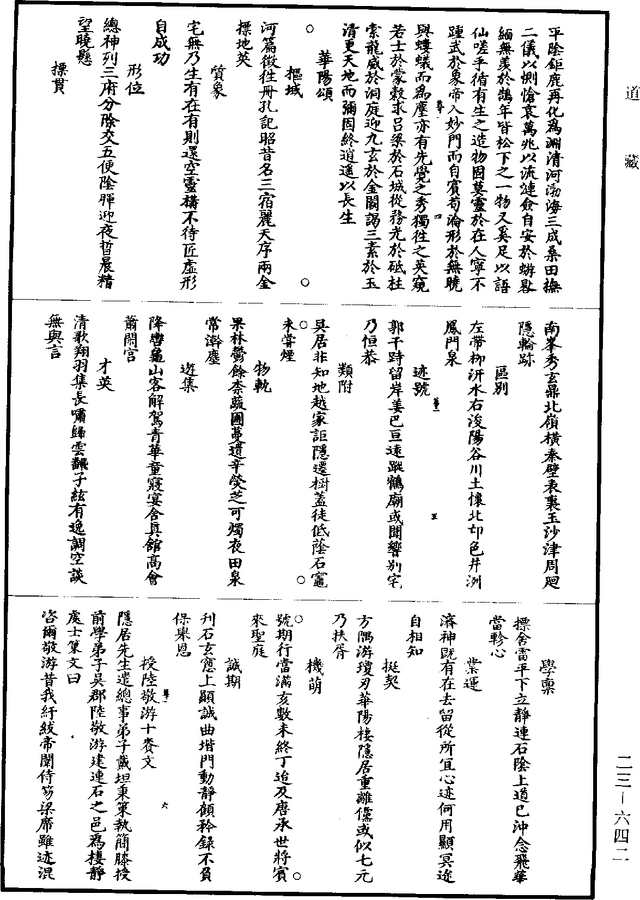 道藏
平陰鉅鹿再化為淵清河渤海三成桑田撫
二儀以惻愴哀萬兆以流連僉自安於蜉晷
緬無羡於鵠年皆松下之一物又奚足以語
仙嗟乎循有生之造物固莫靈於在人寧不
踵武於象帝入妙門而自賓苟淪形於無曉
與螻蟻而為塵亦有先覺之秀獨往之英窺
若士於蒙穀求呂梁於石城從務光於砥柱
索龍威於洞庭迎九玄於金闕謁三素於玉
清更天地而彌固終逍遙以長生
華陽頌
樞域
河篇徵往冊孔記昭昔名三宿麗天序兩金
摽地英
質象
宅無乃生有在有則還空靈構不待匠虛形
自成功
形位
總神列三府分陰交五便陰暉迎夜晢晨精
望曉懸
摽貫
南峯秀玄鼎北嶺橫秦璧表裏玉沙津周廻
隱輪跡
區別
左帶柳汧水右浚陽谷川土懷北邙色井洌
鳳門泉
迹號
郭千跱留岸姜巴亘遠蹤鶴廟或聞響別宅
乃恒恭
類附
吳居非知地越家詎隱遷樹蓋徒低蔭石竈
未嘗煙
物軌
果林鬱餘柰蔬圃蔓遺辛熒芝可燭夜田泉
常澣塵
遊集
降轡龜山客解駕青華童寢宴含真館高會
蕭閑宮
才英
清歌翔羽集長嘯歸雲飜子絃有逸調空談
無與言
學稟
摽舍雷平下立靜連石陰上道已沖念飛華
當軫心
業運
濟神既有在去留從所宜心迹何用顯冥途
自相知
挺契
方隅游瓊刃華陽棲隱居重離儻或似七元
乃扶胥
機萌
號期行當滿亥數未終丁迨及唐承世將賓
來聖庭
誠期
刊石玄窻上顯誠曲堦門動靜顧矜錄不負
保舉恩
授陸敬游十賚文
隱居先生遣總事弟子戴坦秉策執簡膝授
前學弟子吳郡陸敬游建連石之邑為棲靜
處士策文曰
咨爾敬游昔我紆紱帝閽侍笏梁席雖迹混
二三—六四二